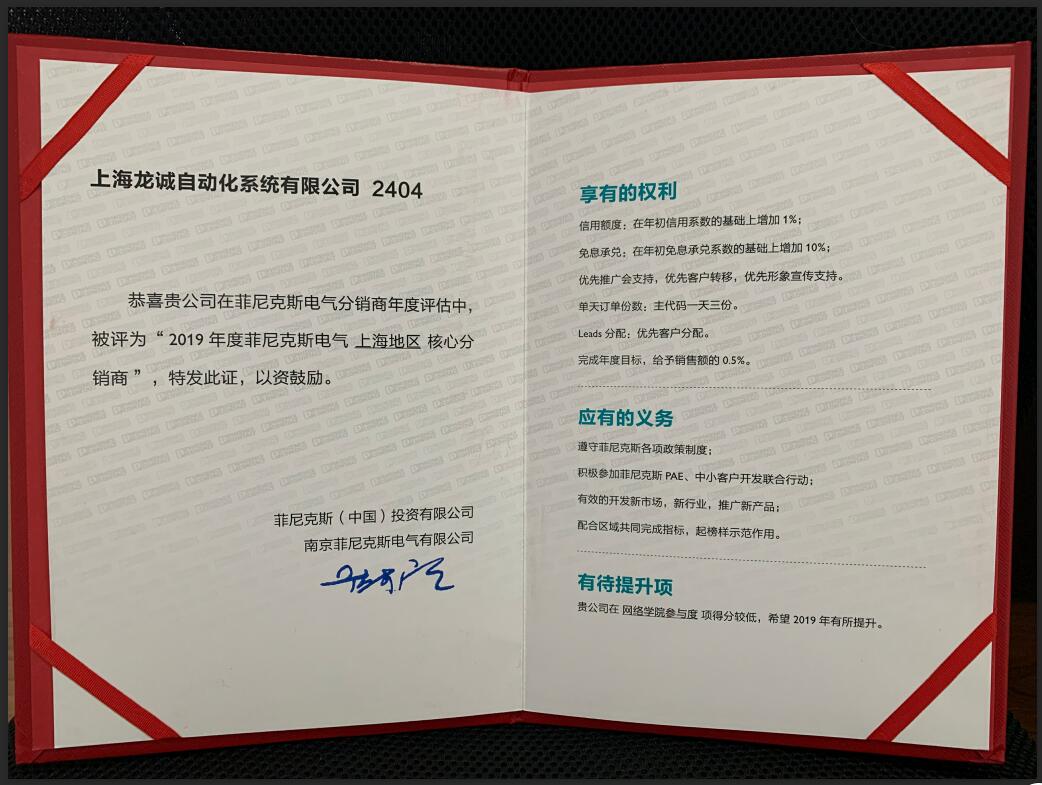 上海龙诚自动化系统有限公司 2404
恭喜贵公司在菲尼克斯电气分销商年度评估中，
被评为“ 2019 年度菲尼克斯电气 上海地区 核心分
销商 ”，特发此证，以资鼓励。
菲尼克斯（中国）投资有限公司
南京菲尼克斯电气有限公司
享有的权利
信用额度：在年初信用系数的基础上增加 1%；
免息承兑：在年初免息承兑系数的基础上增加 10%；
优先推广会支持，优先客户转移，优先形象宣传支持。
单天订单份数：主代码一天三份。
Leads 分配：优先客户分配。
完成年度目标，给予销售额的 0.5%。
应有的义务
遵守菲尼克斯各项政策制度；
积极参加菲尼克斯 PAE、中小客户开发联合行动；
有效的开发新市场，新行业，推广新产品；
配合区域共同完成指标，起榜样示范作用。
有待提升项
贵公司在 网络学院参与度 项得分较低，希望 2019 年有所提升。